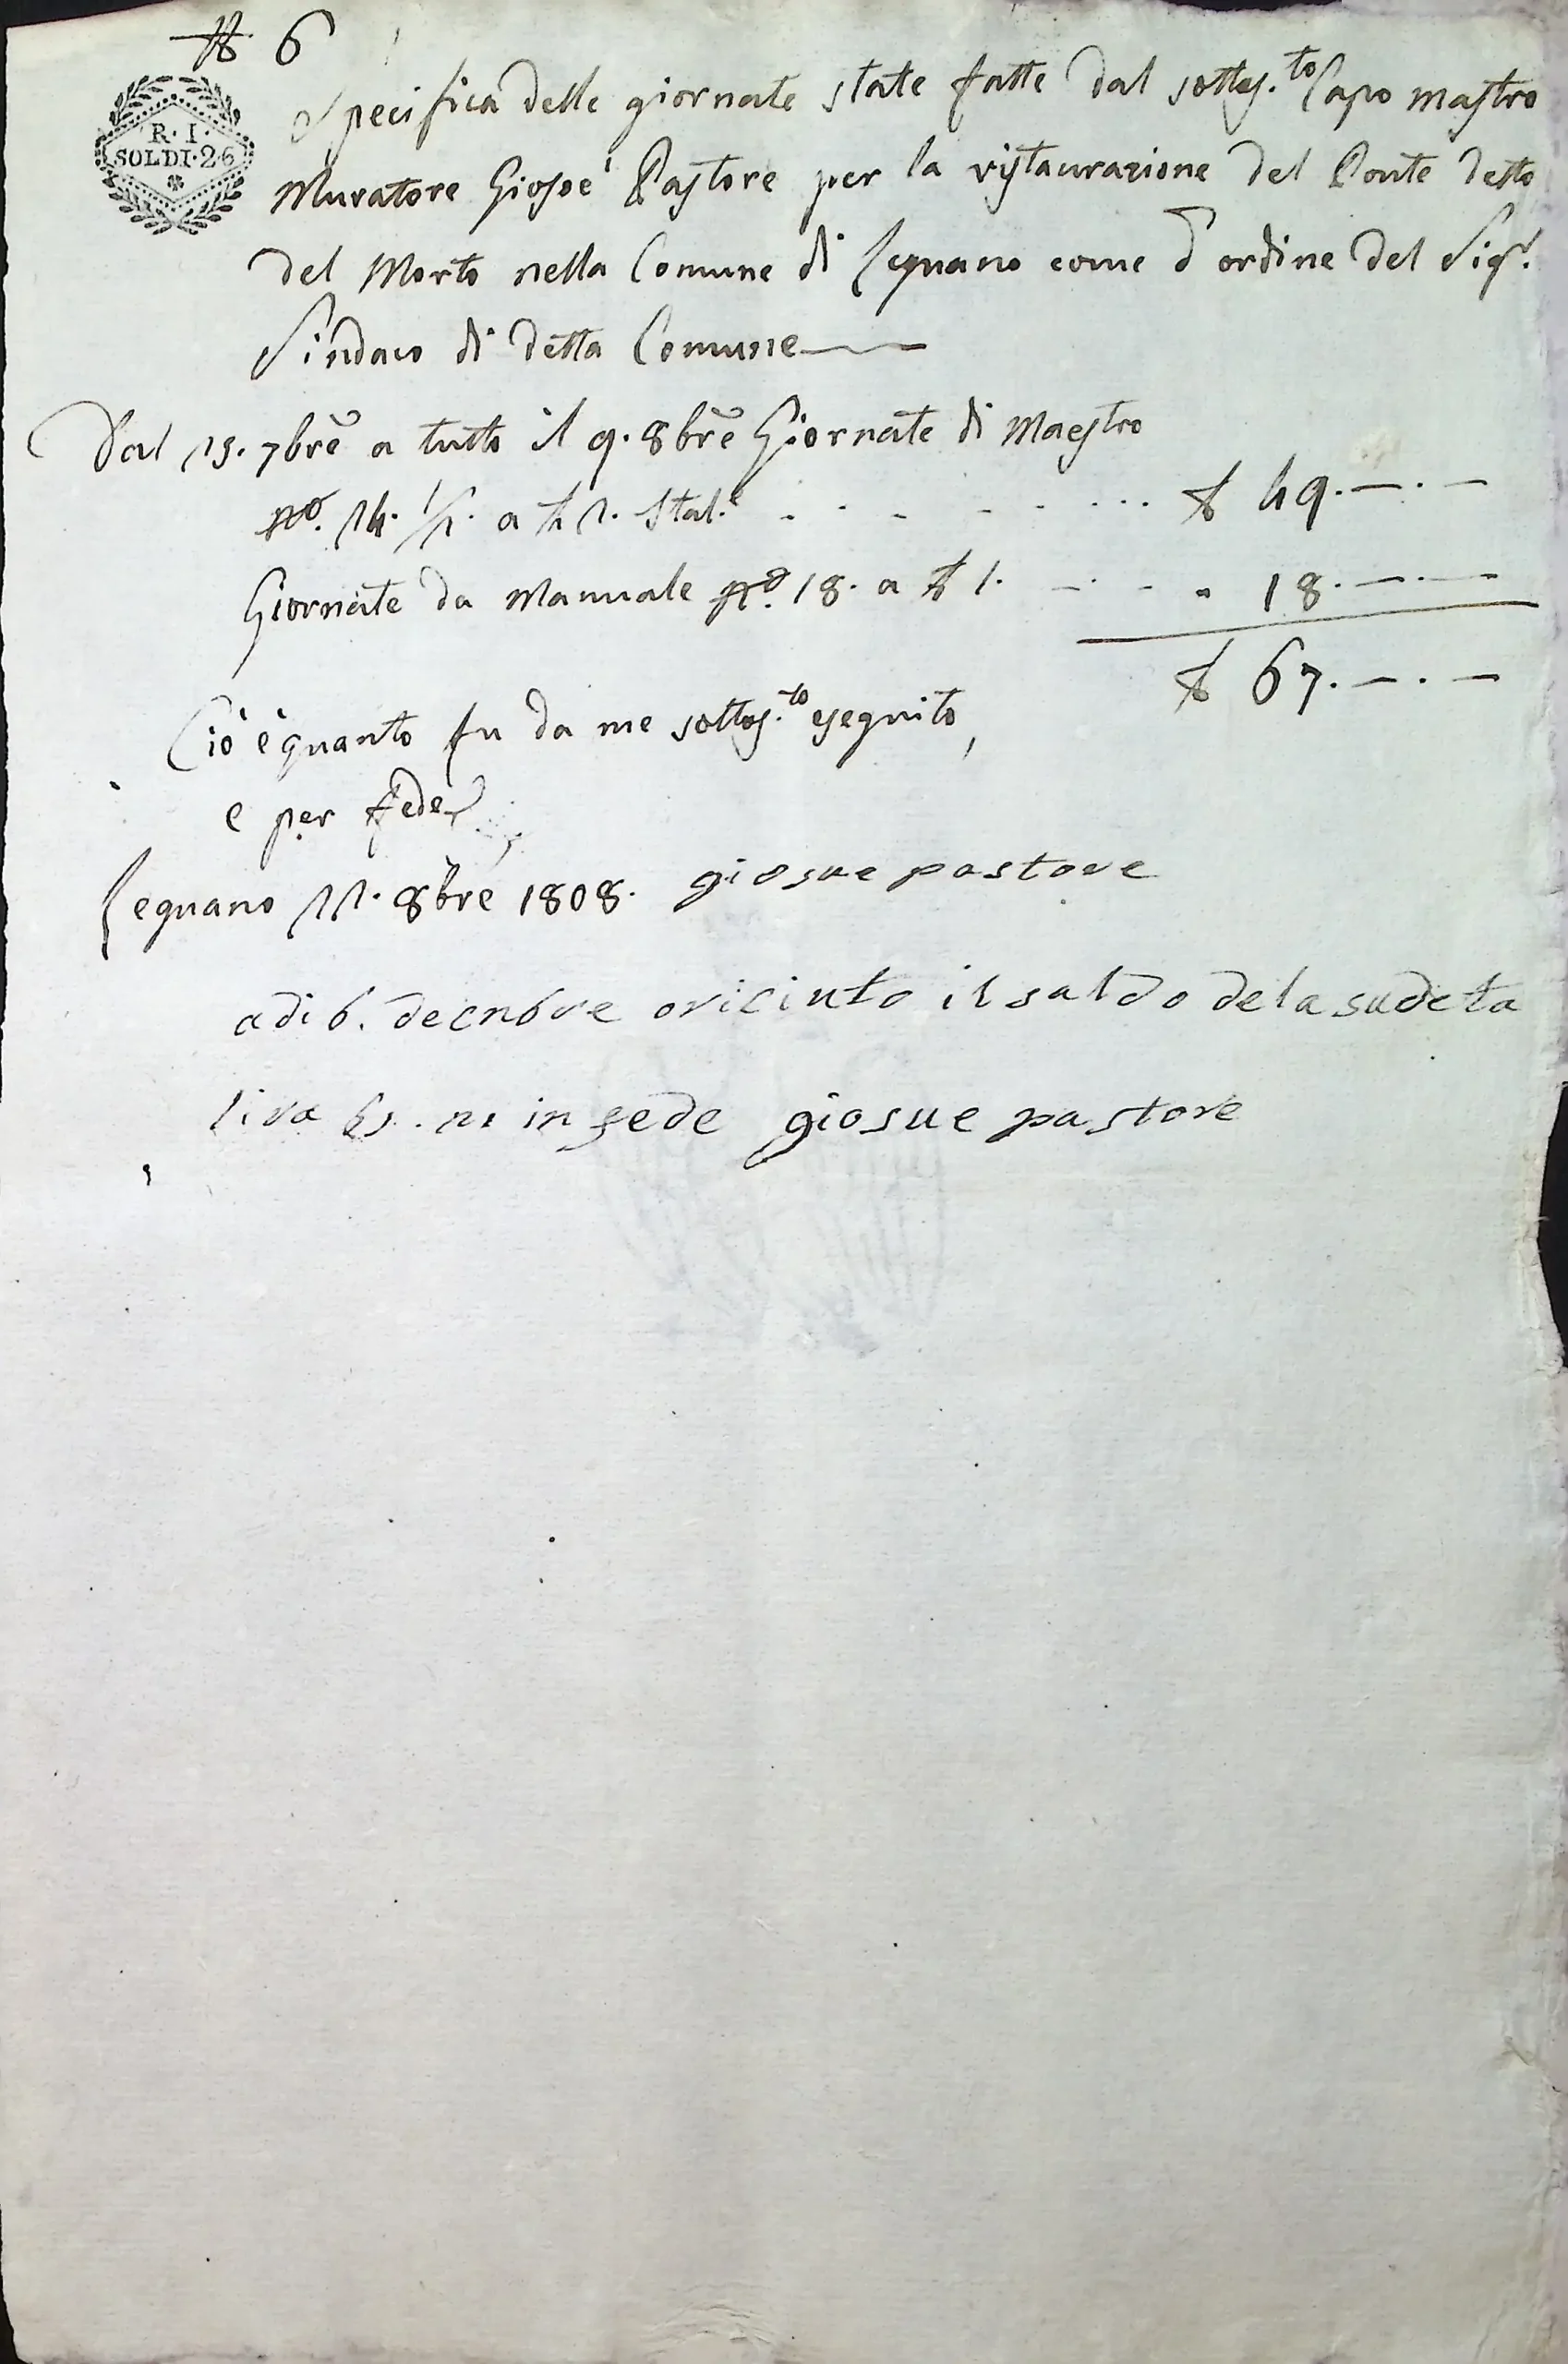 N. 6
R·I·
SOLDI·26
Specifica delle giornate state fatte dal sottos.to Capo mastro
Muratore Giosoè Pastore per la ristaurazione del Ponte detto
del Morto nella Comune di Legnano come d'ordine del Sig.r
Sindaco di detta Comune
Dal 15. 7bre a tutto il 9. 8bre Giornate di Maestro
No. 24. 1/2. a £ 2. Ital.e £ 49.—.—
Giornate da Manuale No. 18. a £ 1. " 18.—.—
£ 67.—.—
Ciò è quanto fu da me sottos.to eseguito,
e per fede
Legnano 22. 8bre 1808. giosue pastore
adi 6. decnbre o riciuto il saldo dela sudeta
in fede giosue pastore